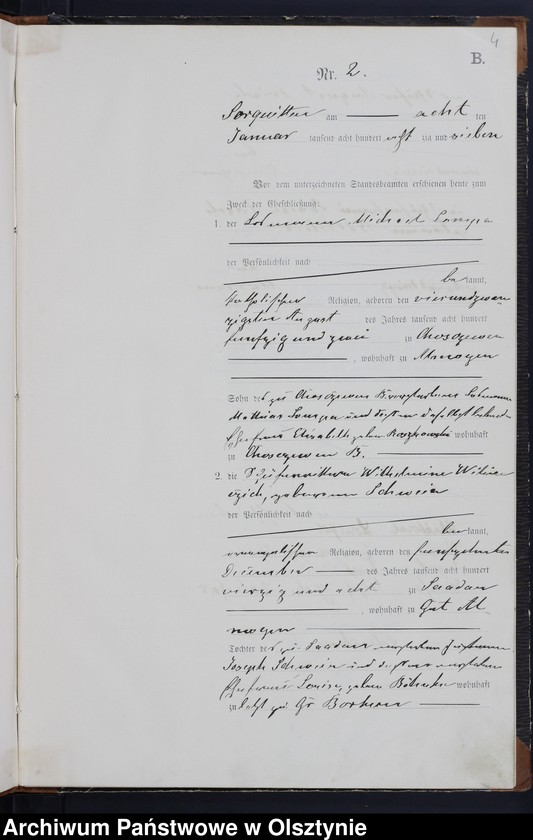 4
B.
Nr. 2.
Sorquitten am acht ten
Januar tausend acht hundert acht zig und sieben
Vor dem unterzeichneten Standesbeamten erschienen heute zum
Zweck der Eheschließung:
1. der Losmann Michael
der Persönlichkeit nach
be kannt,
katholischer Religion, geboren den vierundzwan
zigsten August des Jahres tausend acht hundert
fünfzig und zwei zu Choszewen
, wohnhaft zu Allmoyen
Sohn des zu Choszewen B. verstorbenen Losmann
Mathias und dessen daselbst lebenden
Ehefrau Elisabeth geborn wohnhaft
zu Choszewen B.
2. die Wilhelmine
geborenen Schwein
der Persönlichkeit nach
be kannt,
evangelischer Religion, geboren den fünfzehnten
Dezember des Jahres tausend acht hundert
vierzig und acht zu Saadau
, wohnhaft zu Gut All
moyen
Tochter des zu Saadau verstorbenen
Joseph Schwein und dessen verstorbenen
Ehefrau Louise, geborn wohnhaft
zu letzt zu Gr Borken
Archiwum Państwowe w Olsztynie